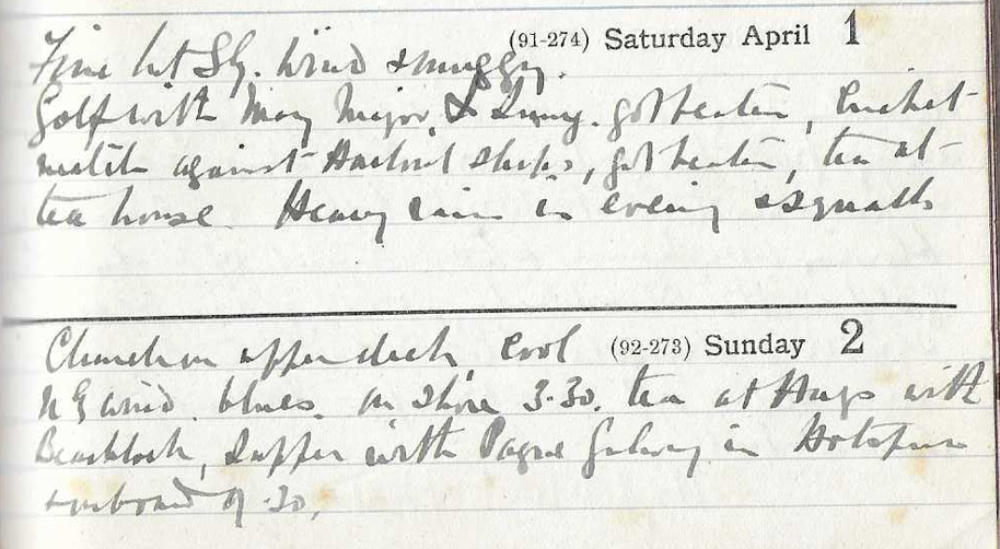 (91-274) Saturday April 1
Fine hot Sly. wind & muggy.
Golf with May Major & got beaten, Cricket
match against ships, got beaten, tea at
tea house. Heavy rain in evening & squalls
Church on upper deck, Cool (92-273) Sunday 2
N E wind. blues. on shore 3.30. tea at Hays with
supper with Payne in Hotspur
onboard 9.30.